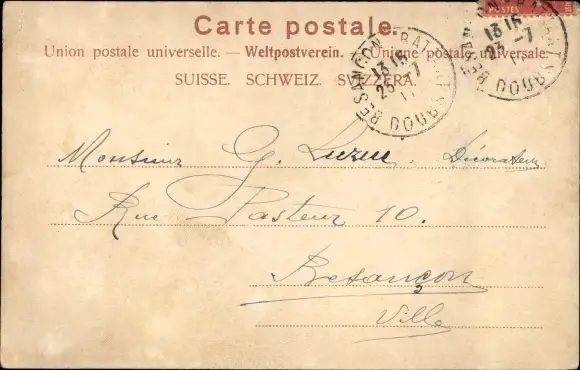 Carte postale.
Union postale universelle. — Weltpostverein. — Unione postale universale.
SUISSE. SCHWEIZ. SVIZZERA.
POSTES
BESANCON BATTANT DOUBS
13 15
23 -7
13 15
23 -7
Monsieur G. Luzeu Décorateur
Rue Pasteur 10.
Besançon
Ville